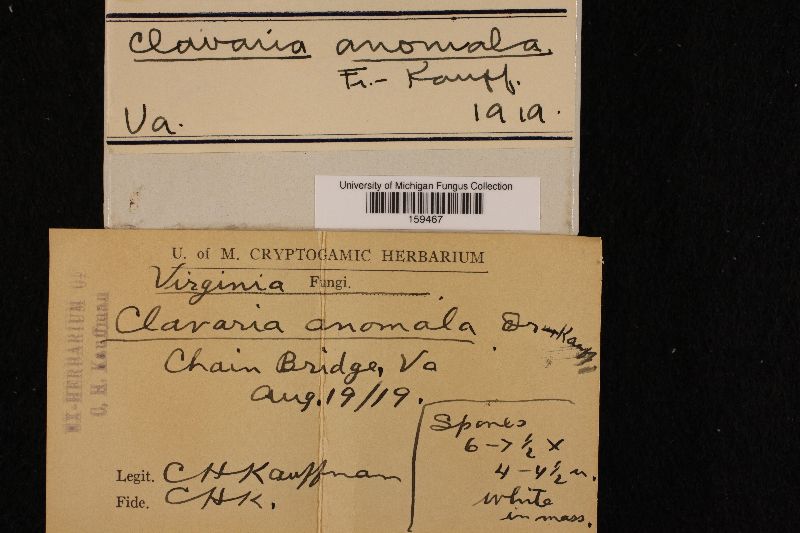 Clavaria anomala.
Fr.- Kauff.
Va. 1919.
University of Michigan Fungus Collection
159467
U. of M. CRYPTOGAMIC HERBARIUM
Virginia Fungi.
Clavaria anomala Fr-Kauff
Chain Bridge, Va
Aug. 19/19.
EX-HERBARIUM OF
C. H. Kauffman
Legit. CHKauffman
Fide. CHK.
Spores
6-7½ x
4-4½ u.
white
in mass.